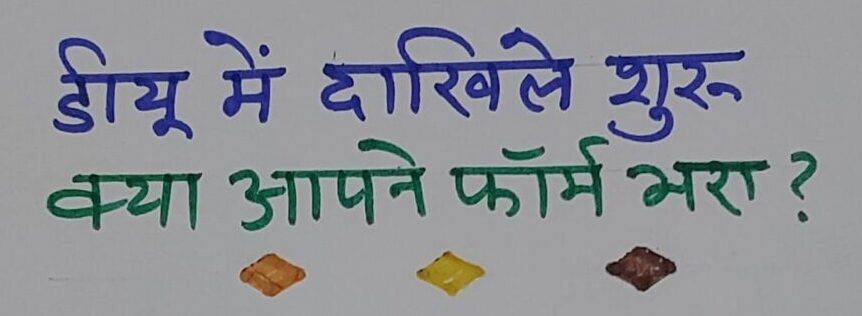 डीयू में दाखिले शुरू
क्या आपने फॉर्म भरा ?